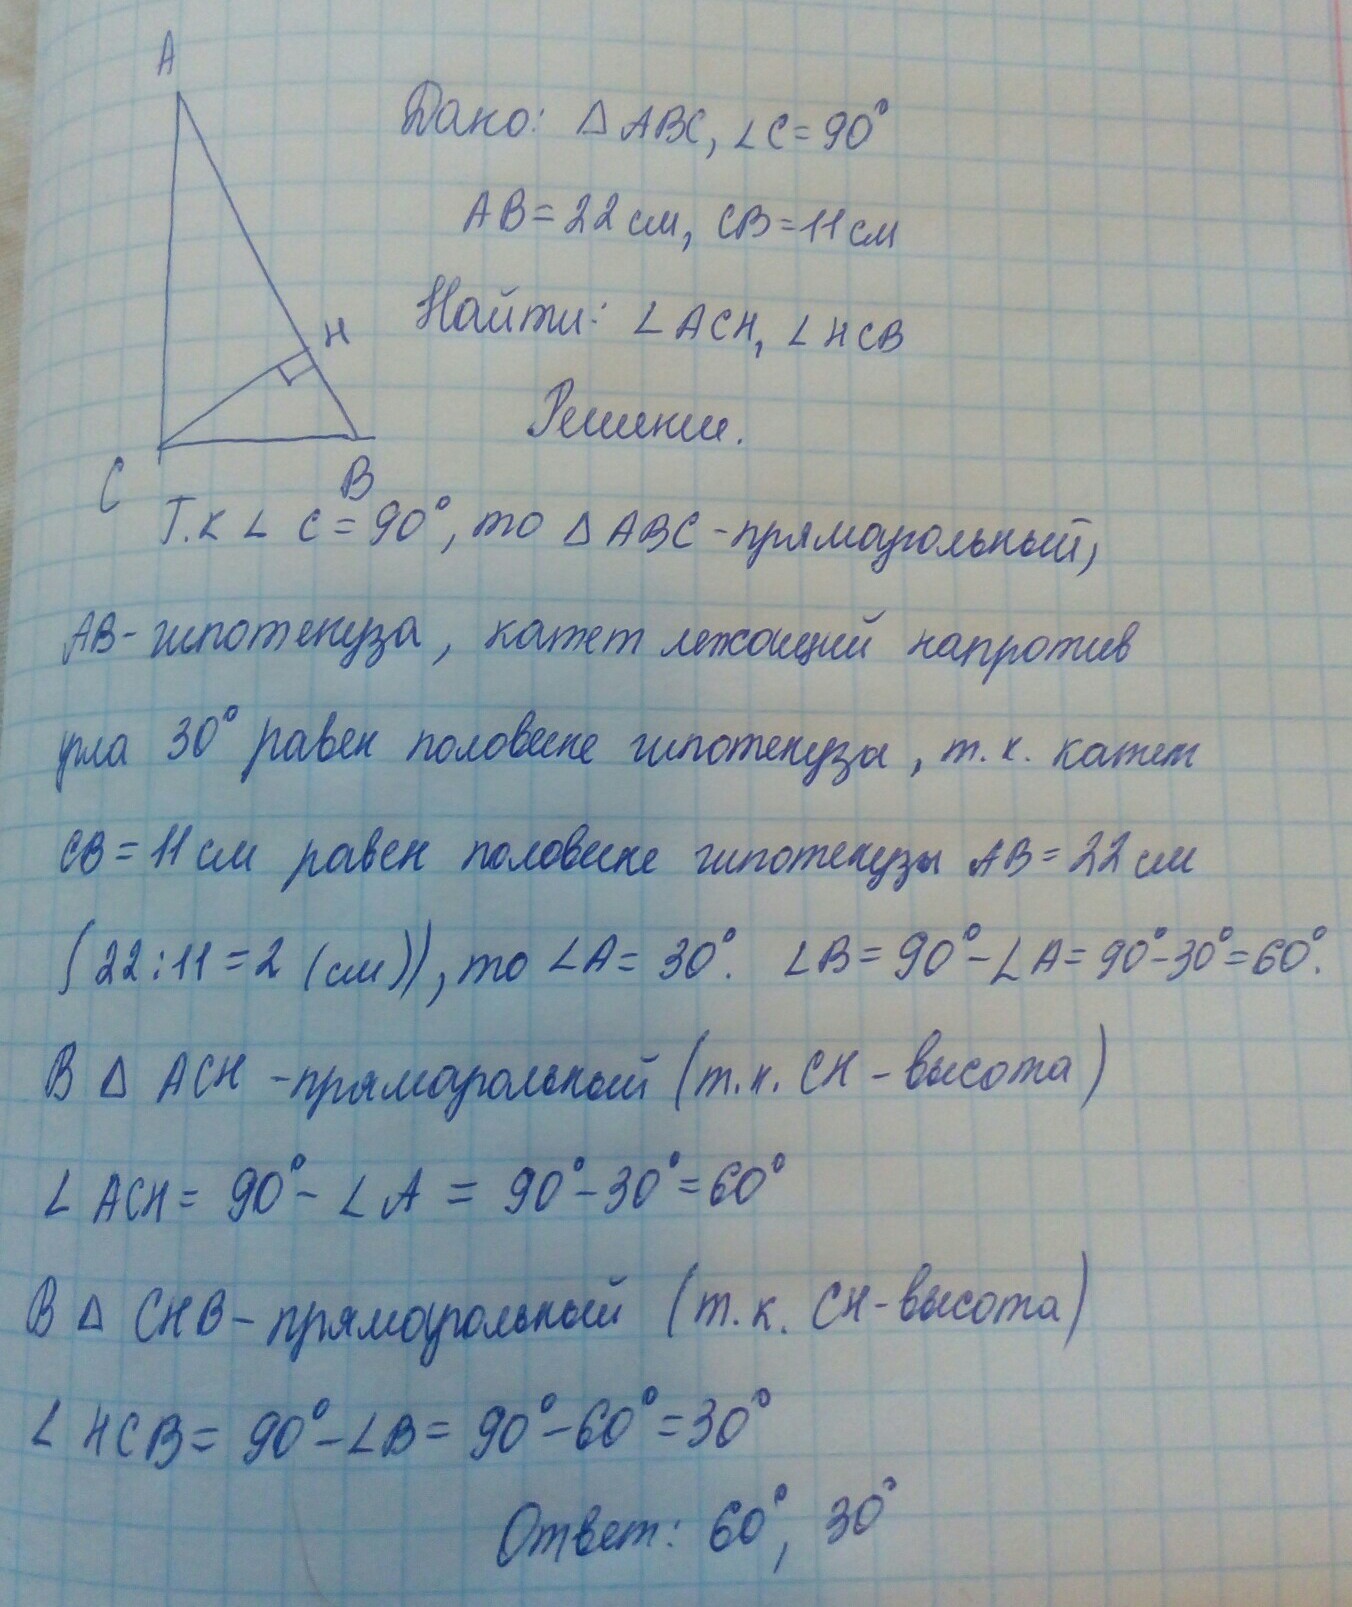 A
Дано: △ ABC, ∠C = 90°
AB = 22 см, CB = 11 см
H
Найти: ∠ ACH, ∠ HCB
Решение.
C
B
Т.к ∠ C = 90°, то △ ABC - прямоугольный,
AB - гипотенуза, катет лежащий напротив
угла 30° равен половине гипотенузы, т.к. катет
CB = 11 см равен половине гипотенузы AB = 22 см
(22 : 11 = 2 (см)), то ∠A = 30°. ∠B = 90° - ∠A = 90° - 30° = 60°.
В △ ACH - прямоугольный (т.к. CH - высота)
∠ ACH = 90° - ∠ A = 90° - 30° = 60°
В △ CHB - прямоугольный (т.к. CH - высота)
∠ HCB = 90° - ∠B = 90° - 60° = 30°
Ответ: 60°, 30°